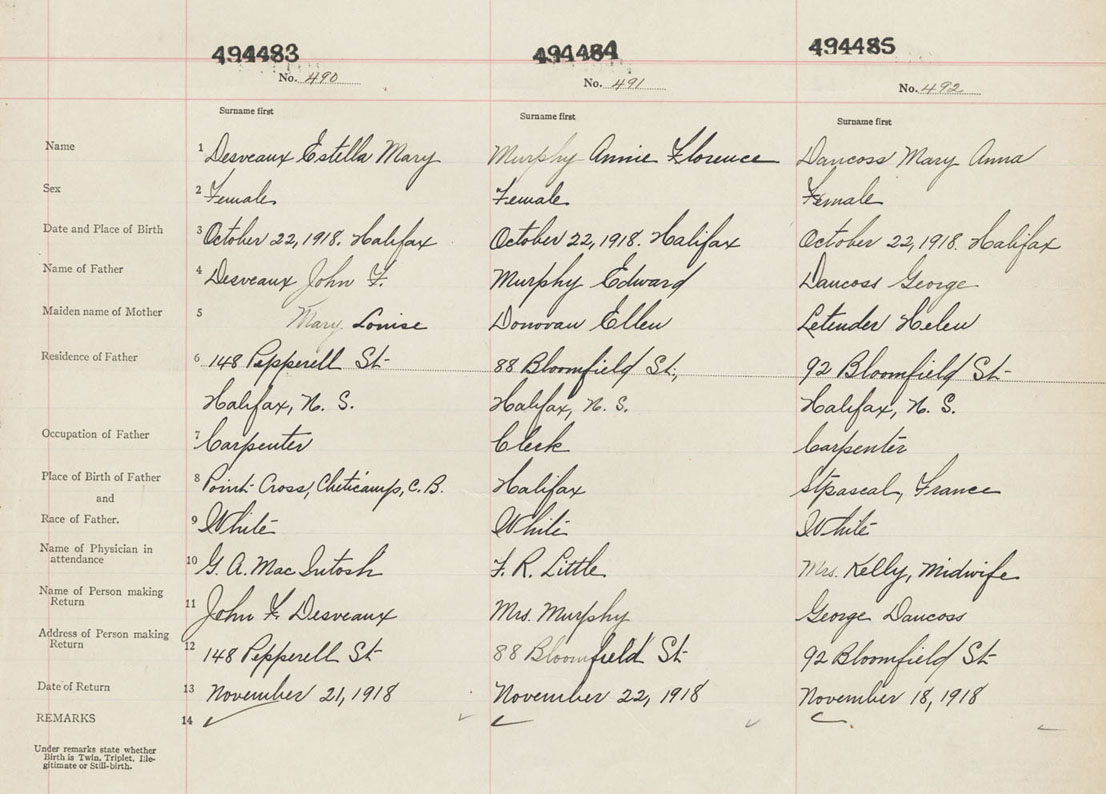 494483 494484 494485
No. 490 No. 491 No. 492
Surname first Surname first Surname first
Name 1 Desveaux Estella Mary Murphy Annie Florence Daucoss Mary Anna
Sex 2 Female Female Female
Date and Place of Birth 3 October 22, 1918. Halifax October 22, 1918. Halifax October 22, 1918. Halifax
Name of Father 4 Desveaux John F. Murphy Edward Daucoss George
Maiden name of Mother 5 Mary Louise Donovan Ellen Letender Helen
Residence of Father 6 148 Pepperell St 88 Bloomfield St., 92 Bloomfield St
Halifax, N. S. Halifax, N. S. Halifax, N. S.
Occupation of Father 7 Carpenter Clerk Carpenter
Place of Birth of Father 8 Point Cross, Cheticamp, C. B. Halifax Stpascal, France
and
Race of Father. 9 White White White
Name of Physician in
attendance 10 G. A. MacIntosh F. R. Little Mrs. Kelly, Midwife
Name of Person making
Return 11 John F. Desveaux Mrs. Murphy George Daucoss
Address of Person making
Return 12 148 Pepperell St 88 Bloomfield St 92 Bloomfield St
Date of Return 13 November 21, 1918 November 22, 1918 November 18, 1918
REMARKS 14
Under remarks state whether
Birth is Twin, Triplet, Ille-
gitimate or Still-birth.